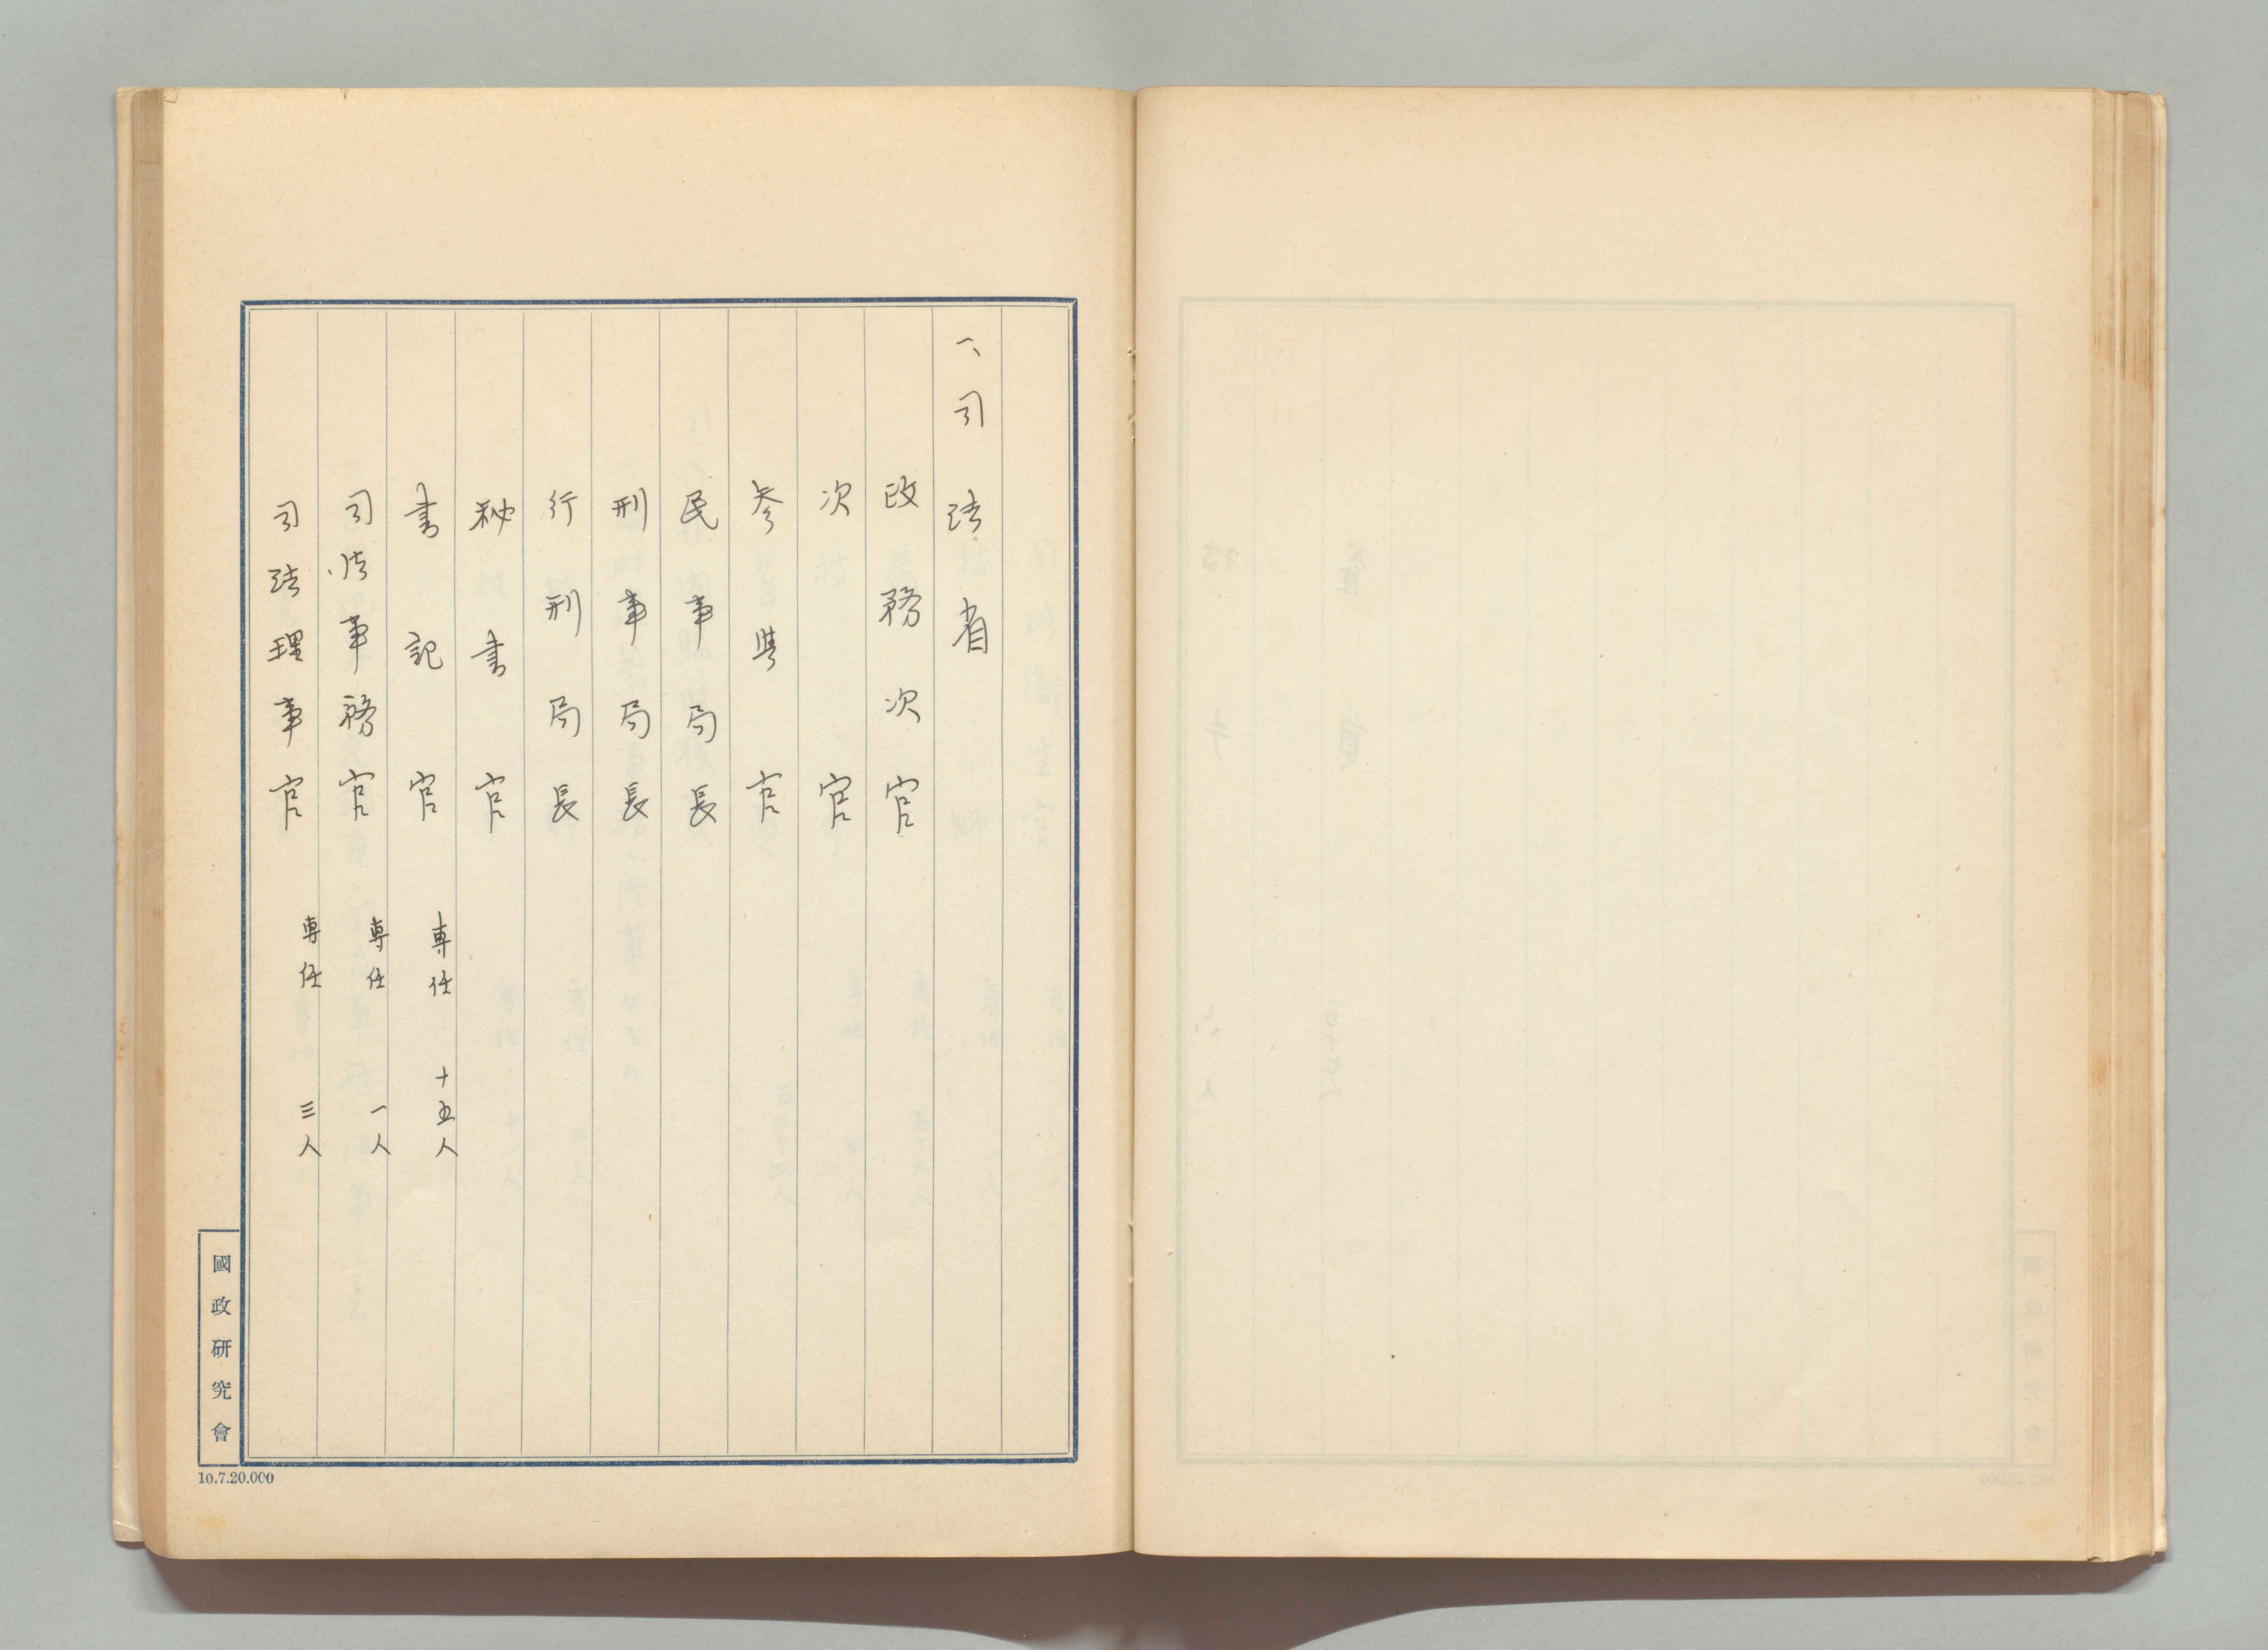 一、司法省
政務次官
次官
参与官
民事局長
刑事局長
行刑局長
秘書官
書記官 専任 十五人
司法事務官 専任 一人
司法理事官 専任 三人
國政研究會
10.7.20.000